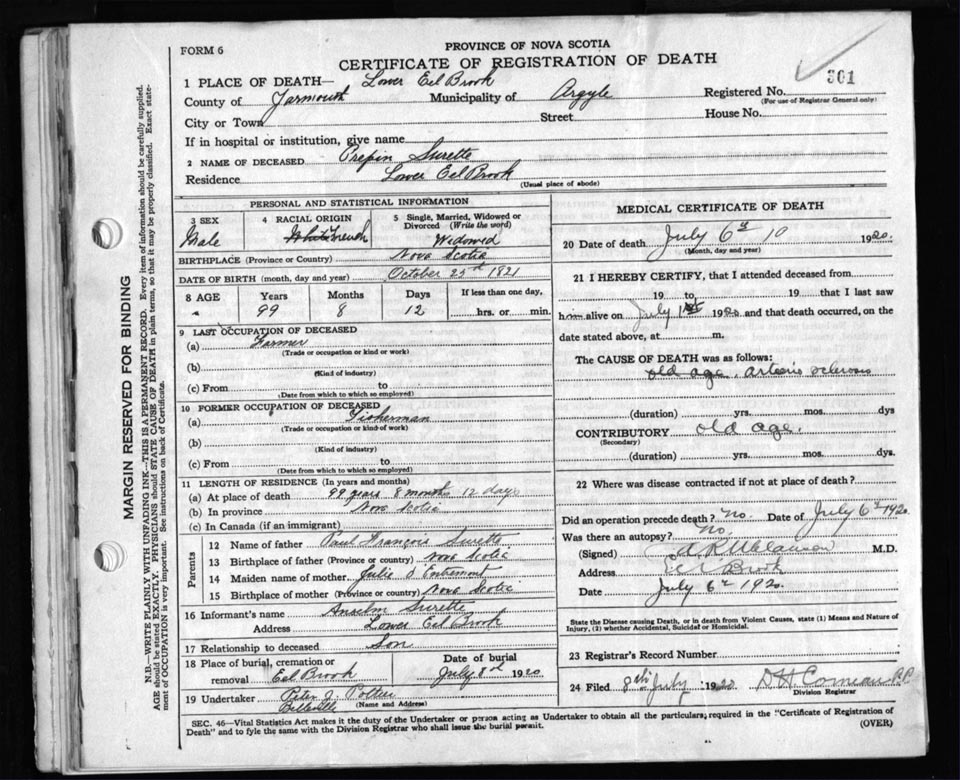 FORM 6
PROVINCE OF NOVA SCOTIA
CERTIFICATE OF REGISTRATION OF DEATH
301
1 PLACE OF DEATH— Lower Eel Brook
County of Yarmouth Municipality of Argyle Registered No.
(For use of Registrar General only)
City or Town Street House No.
If in hospital or institution, give name
2 NAME OF DECEASED Prepin Surette
Residence Lower Eel Brook
(Usual place of abode)
PERSONAL AND STATISTICAL INFORMATION
3 SEX 4 RACIAL ORIGIN 5 Single, Married, Widowed or Divorced (Write the word)
Male White French Widowed
BIRTHPLACE (Province or Country) Nova Scotia
DATE OF BIRTH (month, day and year) October 25th 1821
8 AGE Years Months Days If less than one day,
99 8 12 hrs. or min.
9 LAST OCCUPATION OF DECEASED
(a) Farmer
(Trade or occupation or kind or work)
(b)
(Kind of industry)
(c) From to
(Date from which to which so employed)
10 FORMER OCCUPATION OF DECEASED
(a) Fisherman
(Trade or occupation or kind of work)
(b)
(Kind of industry)
(c) From to
(Date from which to which so employed)
11 LENGTH OF RESIDENCE (In years and months)
(a) At place of death 99 years 8 month 12 days
(b) In province Nova Scotia
(c) In Canada (if an immigrant)
Parents
12 Name of father Paul François Surette
13 Birthplace of father (Province or country) Nova Scotia
14 Maiden name of mother Julie d'Entremont
15 Birthplace of mother (Province or country) Nova Scotia
16 Informant's name Anselm Surette
Address Lower Eel Brook
17 Relationship to deceased Son
18 Place of burial, cremation or removal Eel Brook
Date of burial July 8th 1920
19 Undertaker Peter J. Pottier
Belleville (Name and Address)
MEDICAL CERTIFICATE OF DEATH
20 Date of death July 6th 1920
(Month, day and year)
21 I HEREBY CERTIFY, that I attended deceased from
19 to 19 that I last saw
him alive on July 1st 1920 and that death occurred, on the
date stated above, at m.
The CAUSE OF DEATH was as follows:
old age. arterio sclerosis
(duration) yrs. mos. dys
CONTRIBUTORY old age.
(Secondary)
(duration) yrs. mos. dys.
22 Where was disease contracted if not at place of death?
Did an operation precede death? no. Date of July 6th 1920
Was there an autopsy? no
(Signed) M.D.
Address Eel Brook
Date July 6th 1920.
State the Disease causing Death, or in death from Violent Causes, state (1) Means and Nature of
Injury, (2) whether Accidental, Suicidal or Homicidal.
23 Registrar's Record Number
24 Filed 8th July 1920 D H Comeau P.P.
Division Registrar
SEC. 46—Vital Statistics Act makes it the duty of the Undertaker or person acting as Undertaker to obtain all the particulars, required in the "Certificate of Registration of
Death" and to fyle the same with the Division Registrar who shall issue the burial permit.
(OVER)
MARGIN RESERVED FOR BINDING
N.B.—WRITE PLAINLY WITH UNFADING INK—THIS IS A PERMANENT RECORD. Every item of information should be carefully supplied.
AGE should be stated EXACTLY. PHYSICIANS should STATE CAUSE OF DEATH in plain terms, so that it may be properly classified. Exact statement of OCCUPATION is very important. See instructions on back of Certificate.